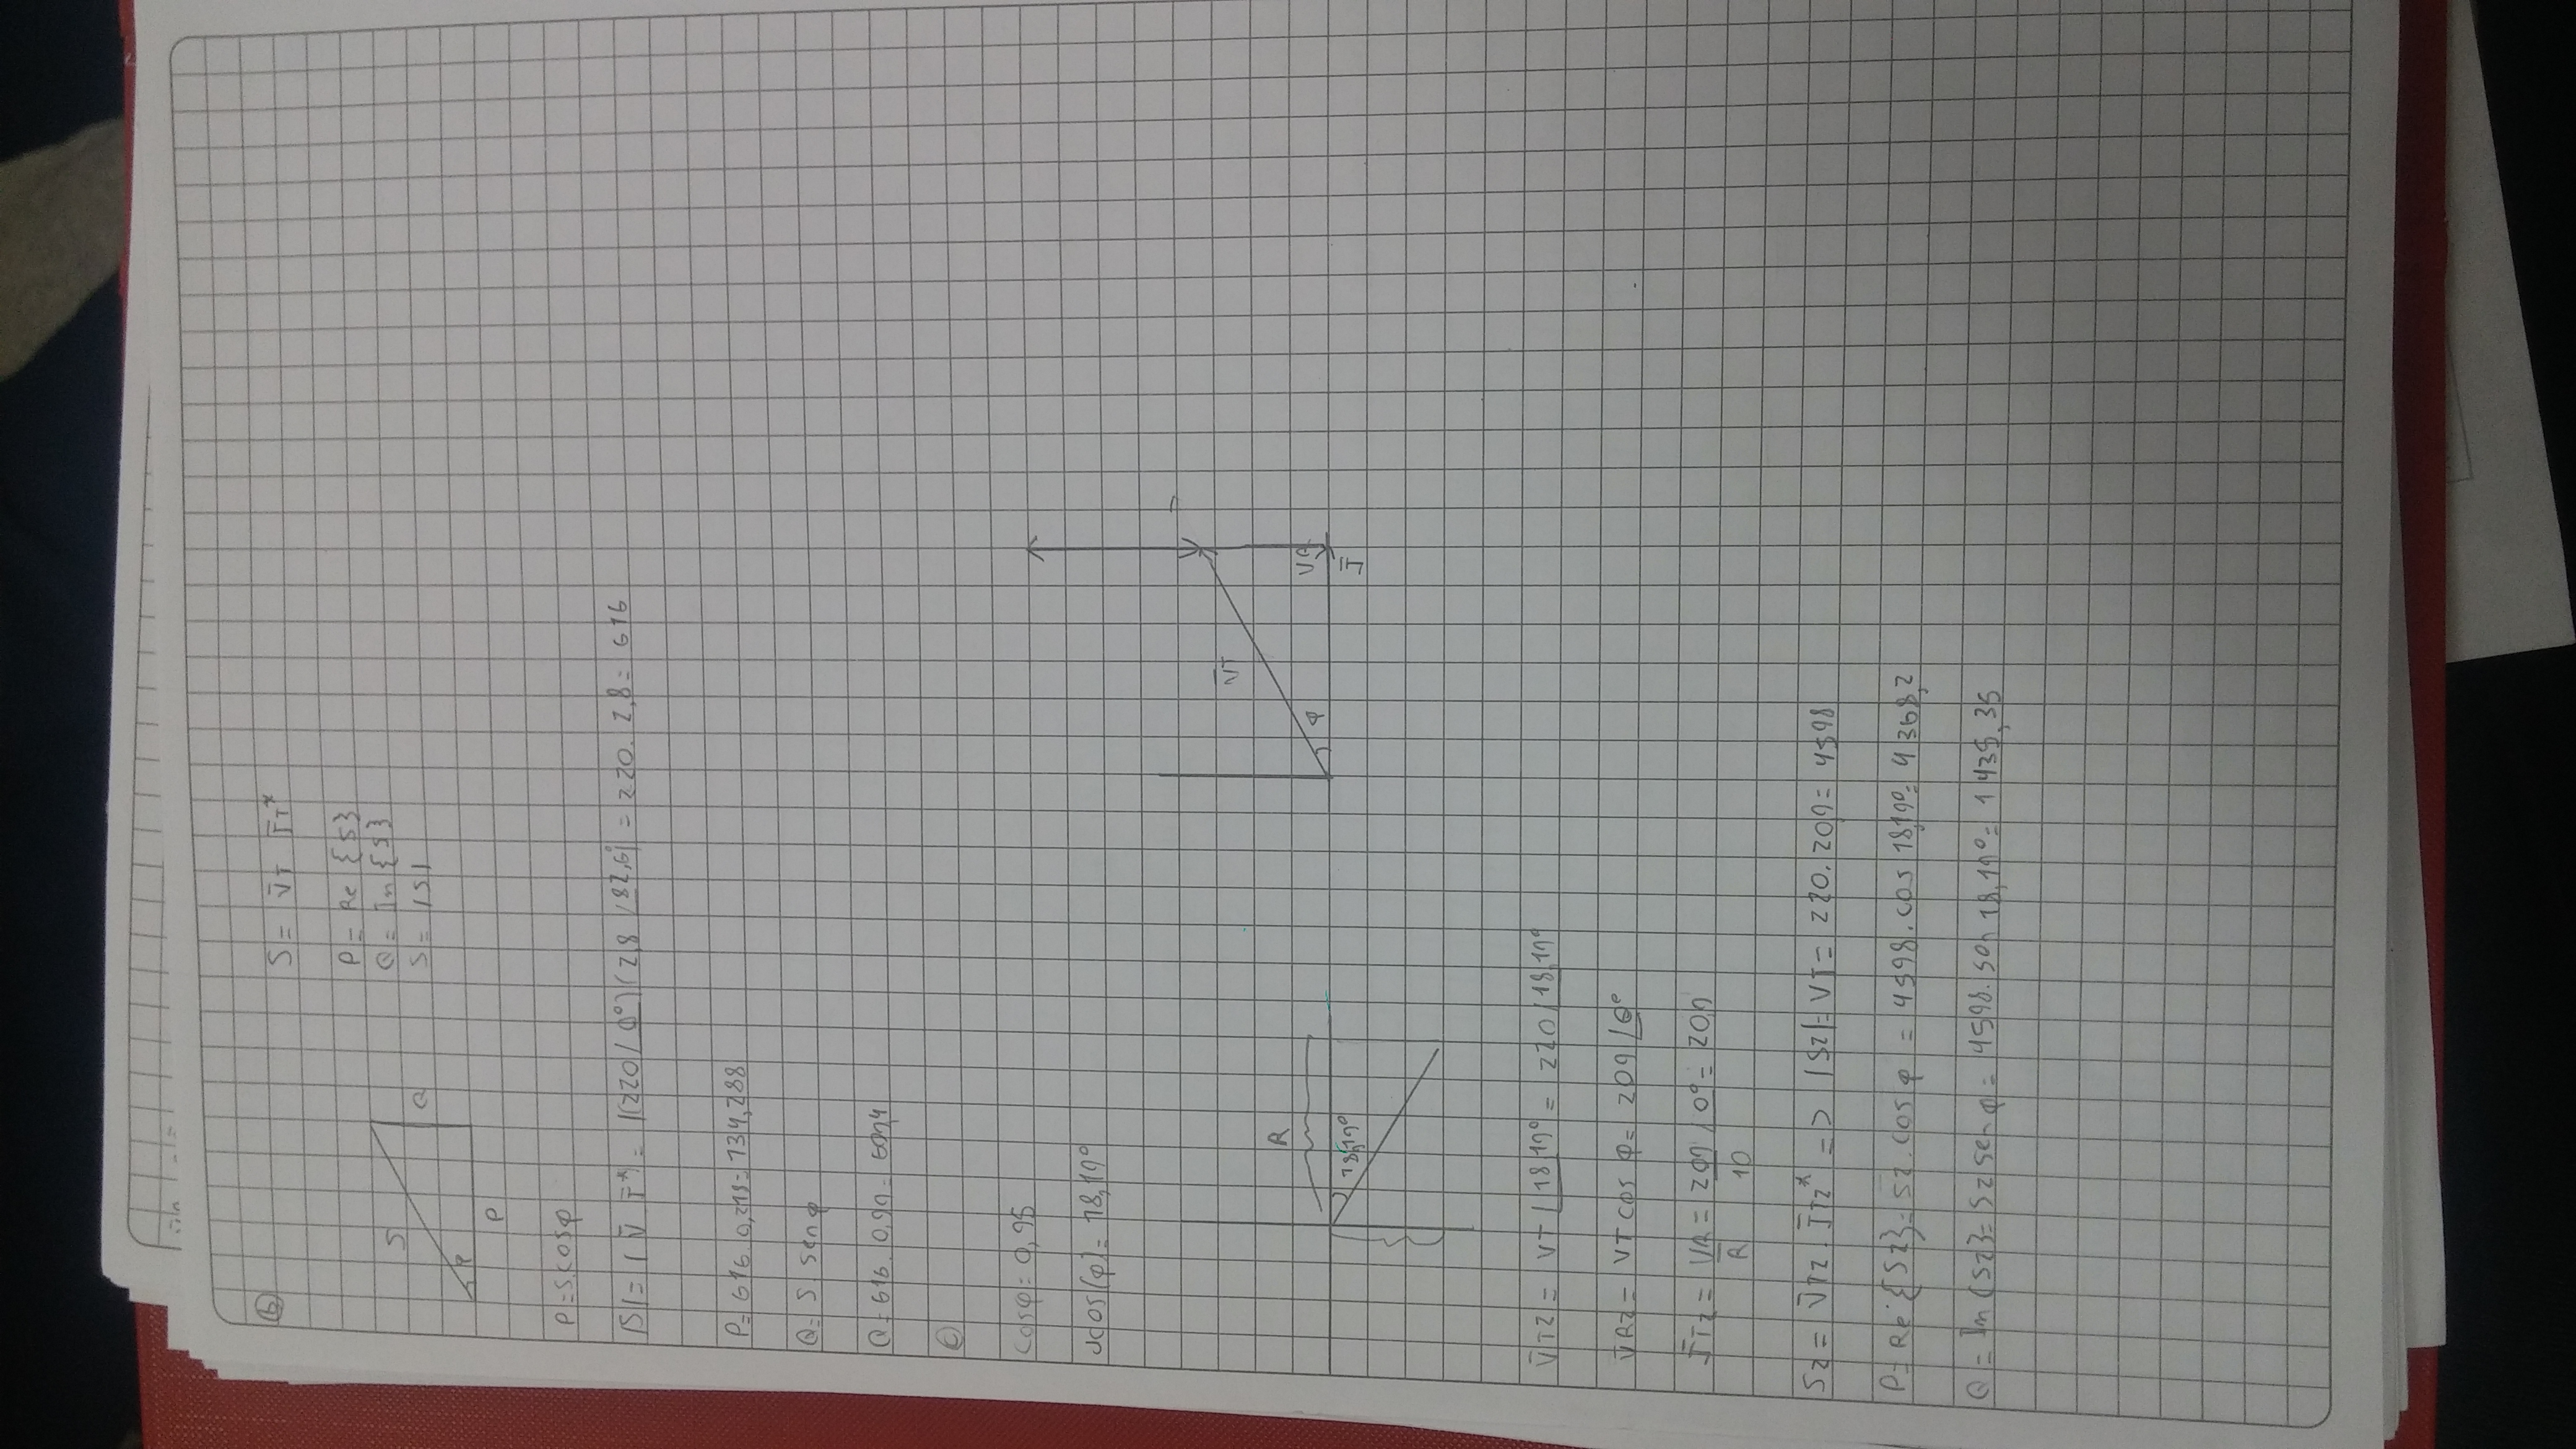 b
S = V̅T I̅T*
S
P = Re {S}
Q
Q = Im {S}
φ
S = |S|
P
P = S.cosφ
|S| = | V̅ I̅*| = |(220/0°)(2,8/82,6| = 220.2,8 = 616
P = 616.0,218 = 134,288
Q = S senφ
Q = 616.0,99 = 609,4
cosφ = 0,95
acos(φ) = 18,19°
V̅T
R
φ
VR
18,19°
I̅
V̅T2 = VT /18,19° = 220/18,19°
V̅R2 = VT cosφ = 209 /0°
I̅T2 = V̅R = 209 /0° = 20,9
R 10
S2 = V̅T2 . I̅T2* => |S2| = VT = 220.20,9 = 4598
P = Re {S2} = S2.cosφ = 4598.cos 18,19° = 4368,2
Q = Im {S2} = S2 senφ = 4598.sen 18,19° = 1435,35